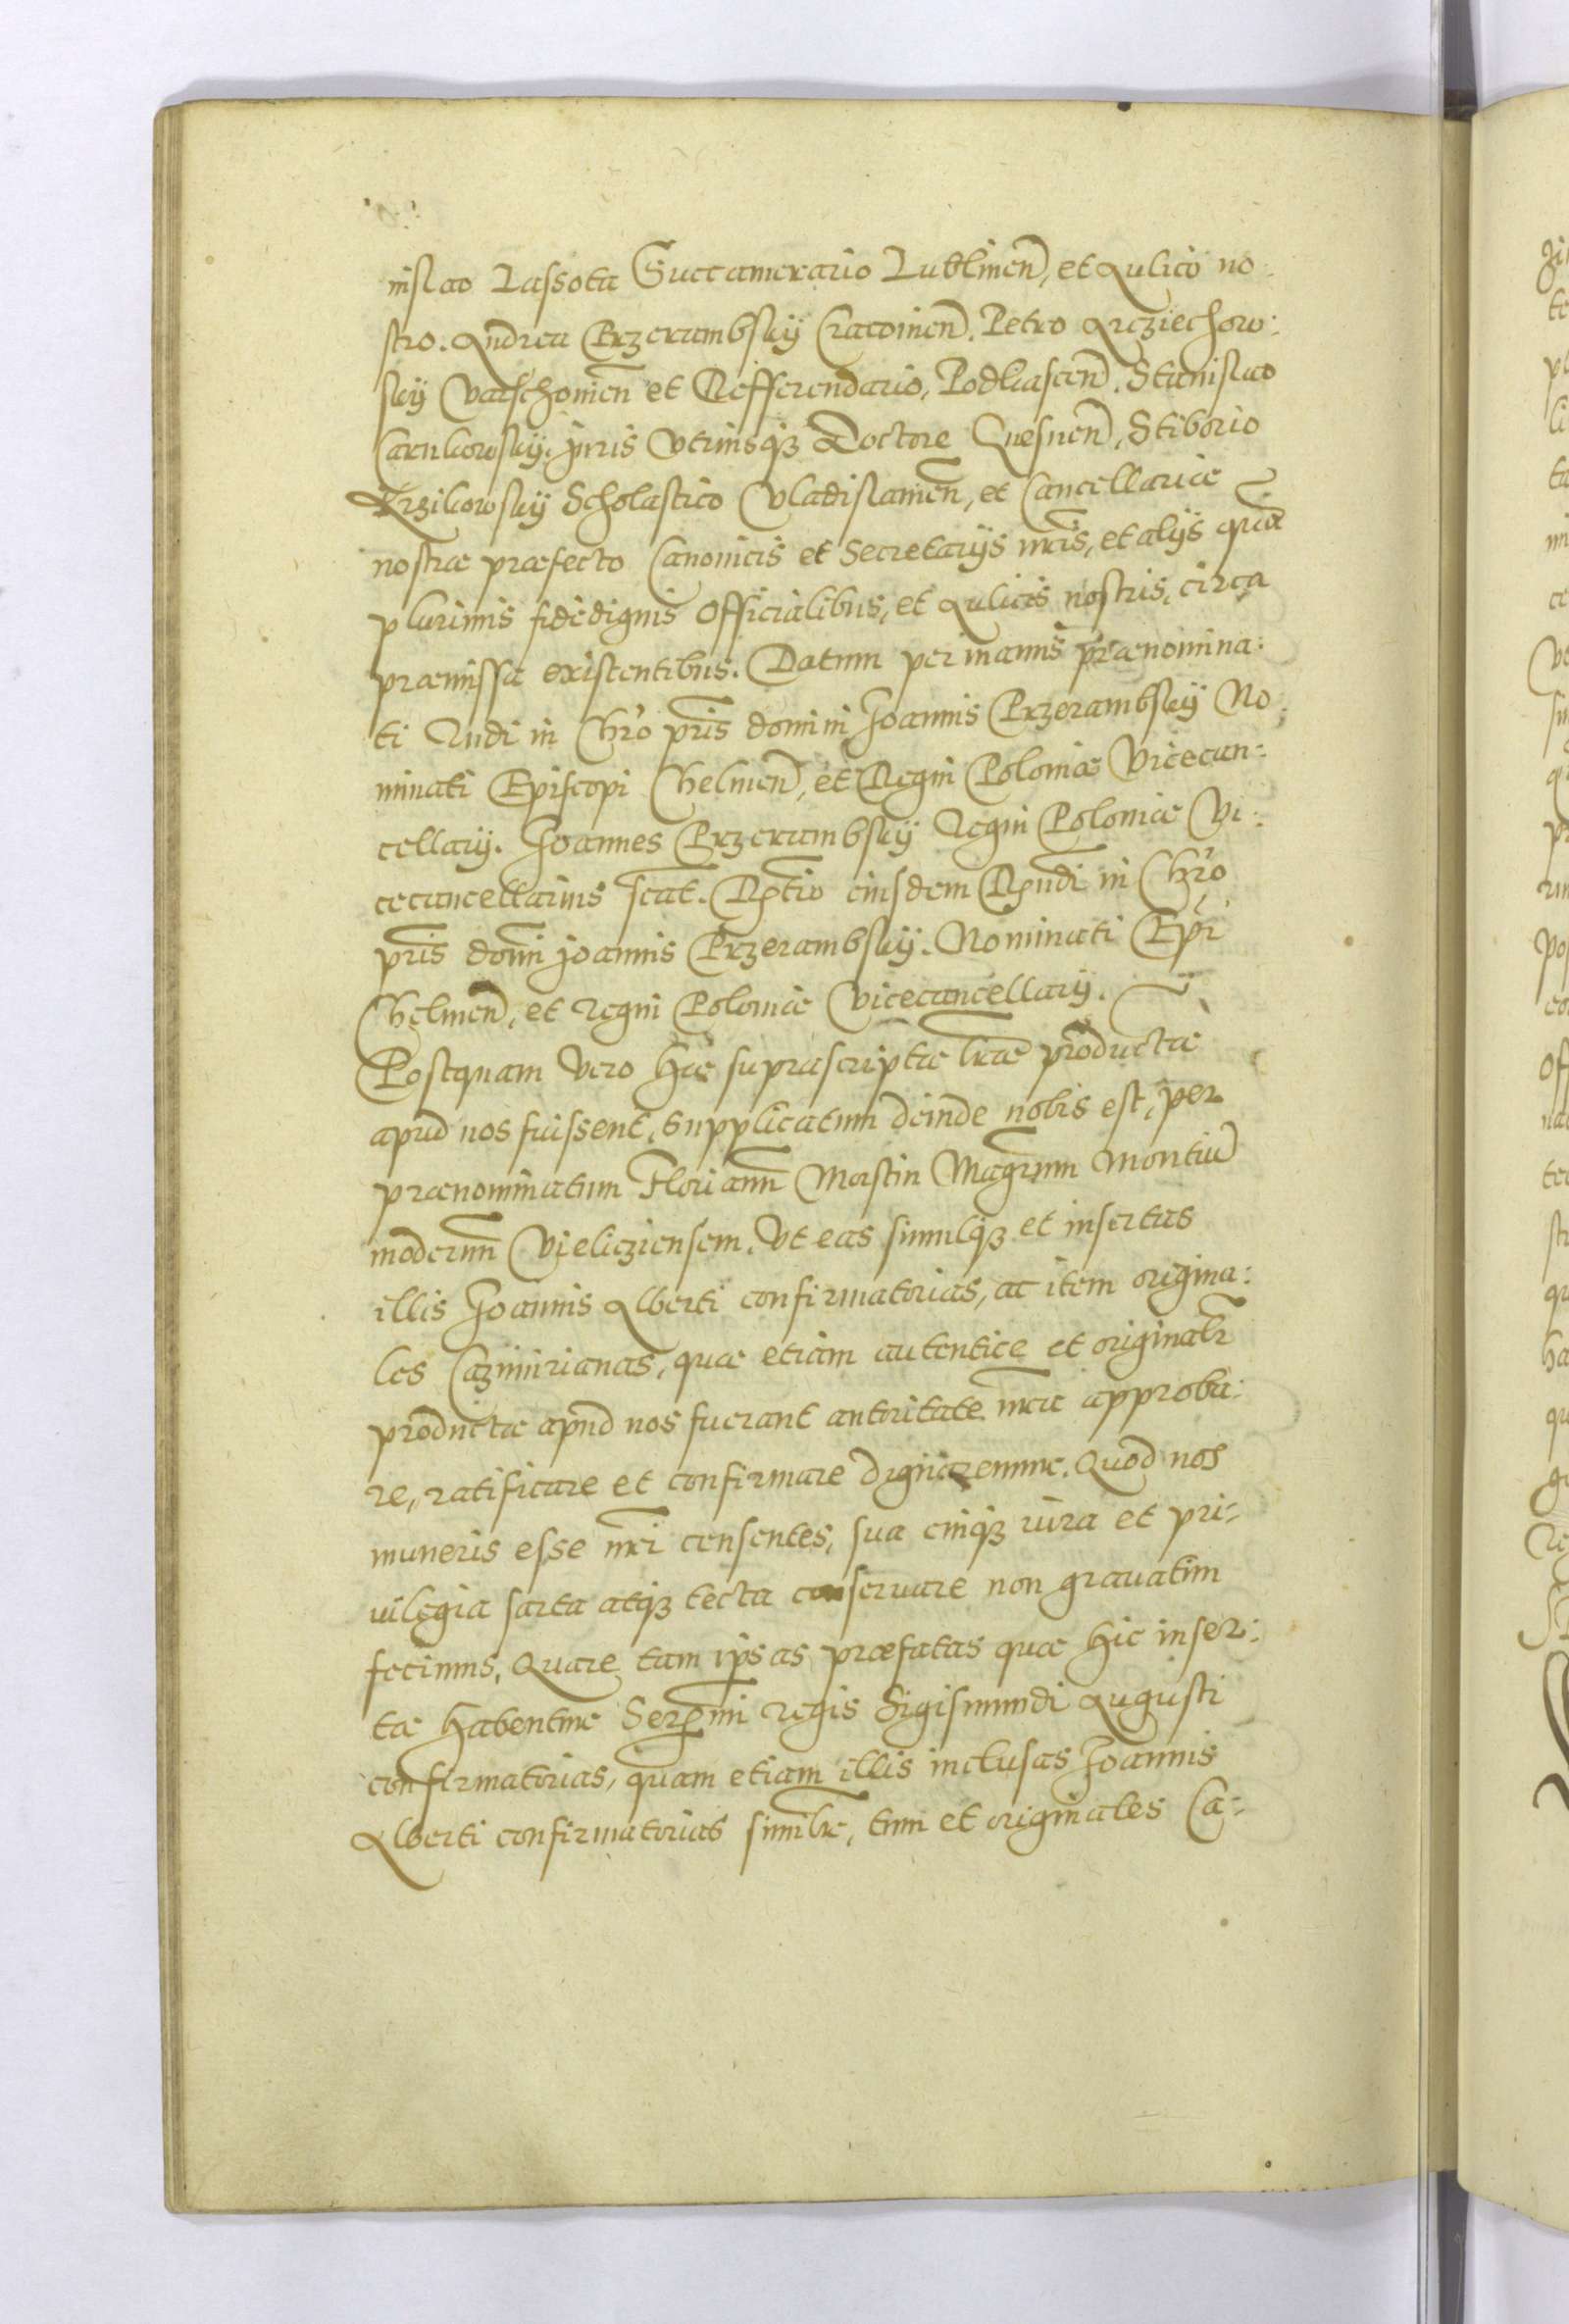 nislao Lassota Succamerario Lublinen, et Aulico no:
stro. Andrea Przerambskij Cracouien. Petro Arziechow:
skij Varschouien et Refferendario, Podlascen. Stanislao
Carnkowskij, juris vtriusq3 Doctore Gnesnen, Stiborio
Krzikowskij Scholastico Vladislauien, et Cancellariæ
nostræ præfecto Canonicis et Secretarijs nris, et alijs quã
plurimis fidedignis Officialibus, et Aulicis nostris, circa
præmissa existentibus. Datum per manus prænomina:
ti Rndi in Chro pris domini Joannis Przerambskij No:
minati Episcopi Chelmen, et Regni Poloniæ Vicecan:
cellarij. Joannes Przerambskij Regni Poloniæ Vi:
cecancellarius scat. Rltio eiusdem Rndi in Chro
pris domi Joannis Przerambskij. Nominati Epi
Chelmen, et regni Poloniæ Vicecancellarij.
Postquam vero hæ suprascriptæ lræ productæ
apud nos fuissent, supplicatum deinde nobis est, per
prænominatum Florianu Morstin Magrum Montiu
modernu Vielicziensem, Vt eas simulq3 et insertas
illis Joannis Alberti confirmatorias, ac item origina:
les Cazimirianas, quæ etiam autentice et originalr
productæ apud nos fuerant autoritate nra approba:
re, ratificare et confirmare dignaremur. Quod nos
muneris esse nri censentes, sua cuiq3 iura et pri:
uilegia sarta atq3 tecta conseruare non grauatim
fecimus, Quare tam ipsas præfatas quæ hic inser:
tæ habentur Sermi regis Sigismundi Augusti
confirmatorias, quam etiam illis inclusas Joannis
Alberti confirmatorias similr, tum et originales Ca: